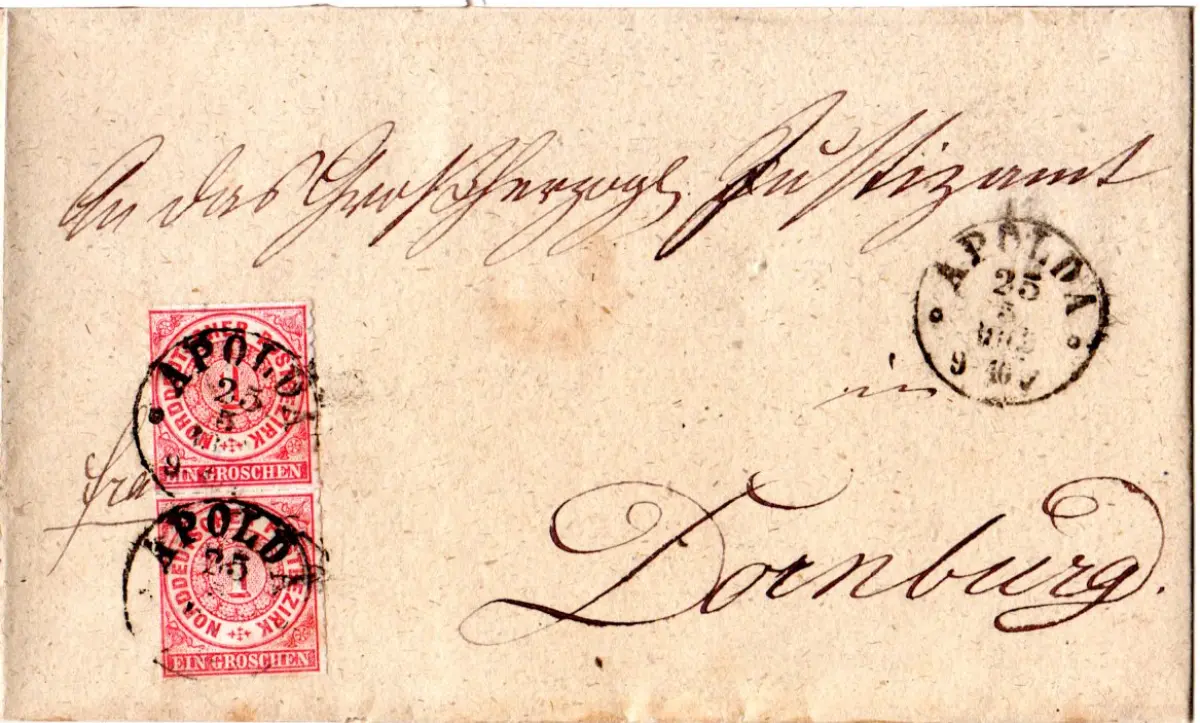 An das Großherzogl Justizamt
APOLDA
25
5
9 10
in
NORDDEUTSCHER POSTBEZIRK
1
EIN GROSCHEN
APOLDA
25
5
9
fra
Dornburg.
NORDDEUTSCHER POSTBEZIRK
1
EIN GROSCHEN
APOLDA
25